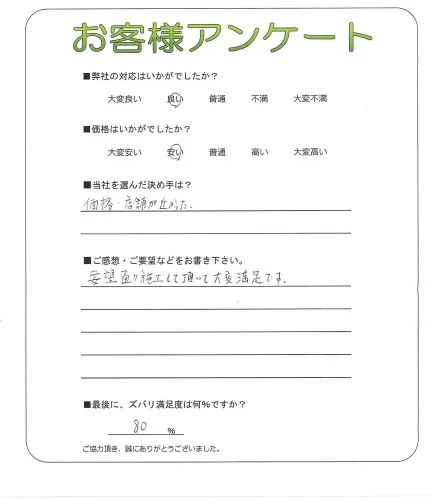 お客様アンケート
■弊社の対応はいかがでしたか？
大変良い 良い 普通 不満 大変不満
■価格はいかがでしたか？
大変安い 安い 普通 高い 大変高い
■当社を選んだ決め手は？
価格・店舗が近かった。
■ご感想・ご要望などをお書き下さい。
要望通り施工して頂いて大変満足です。
■最後に、ズバリ満足度は何%ですか？
80 %
ご協力頂き、誠にありがとうございました。